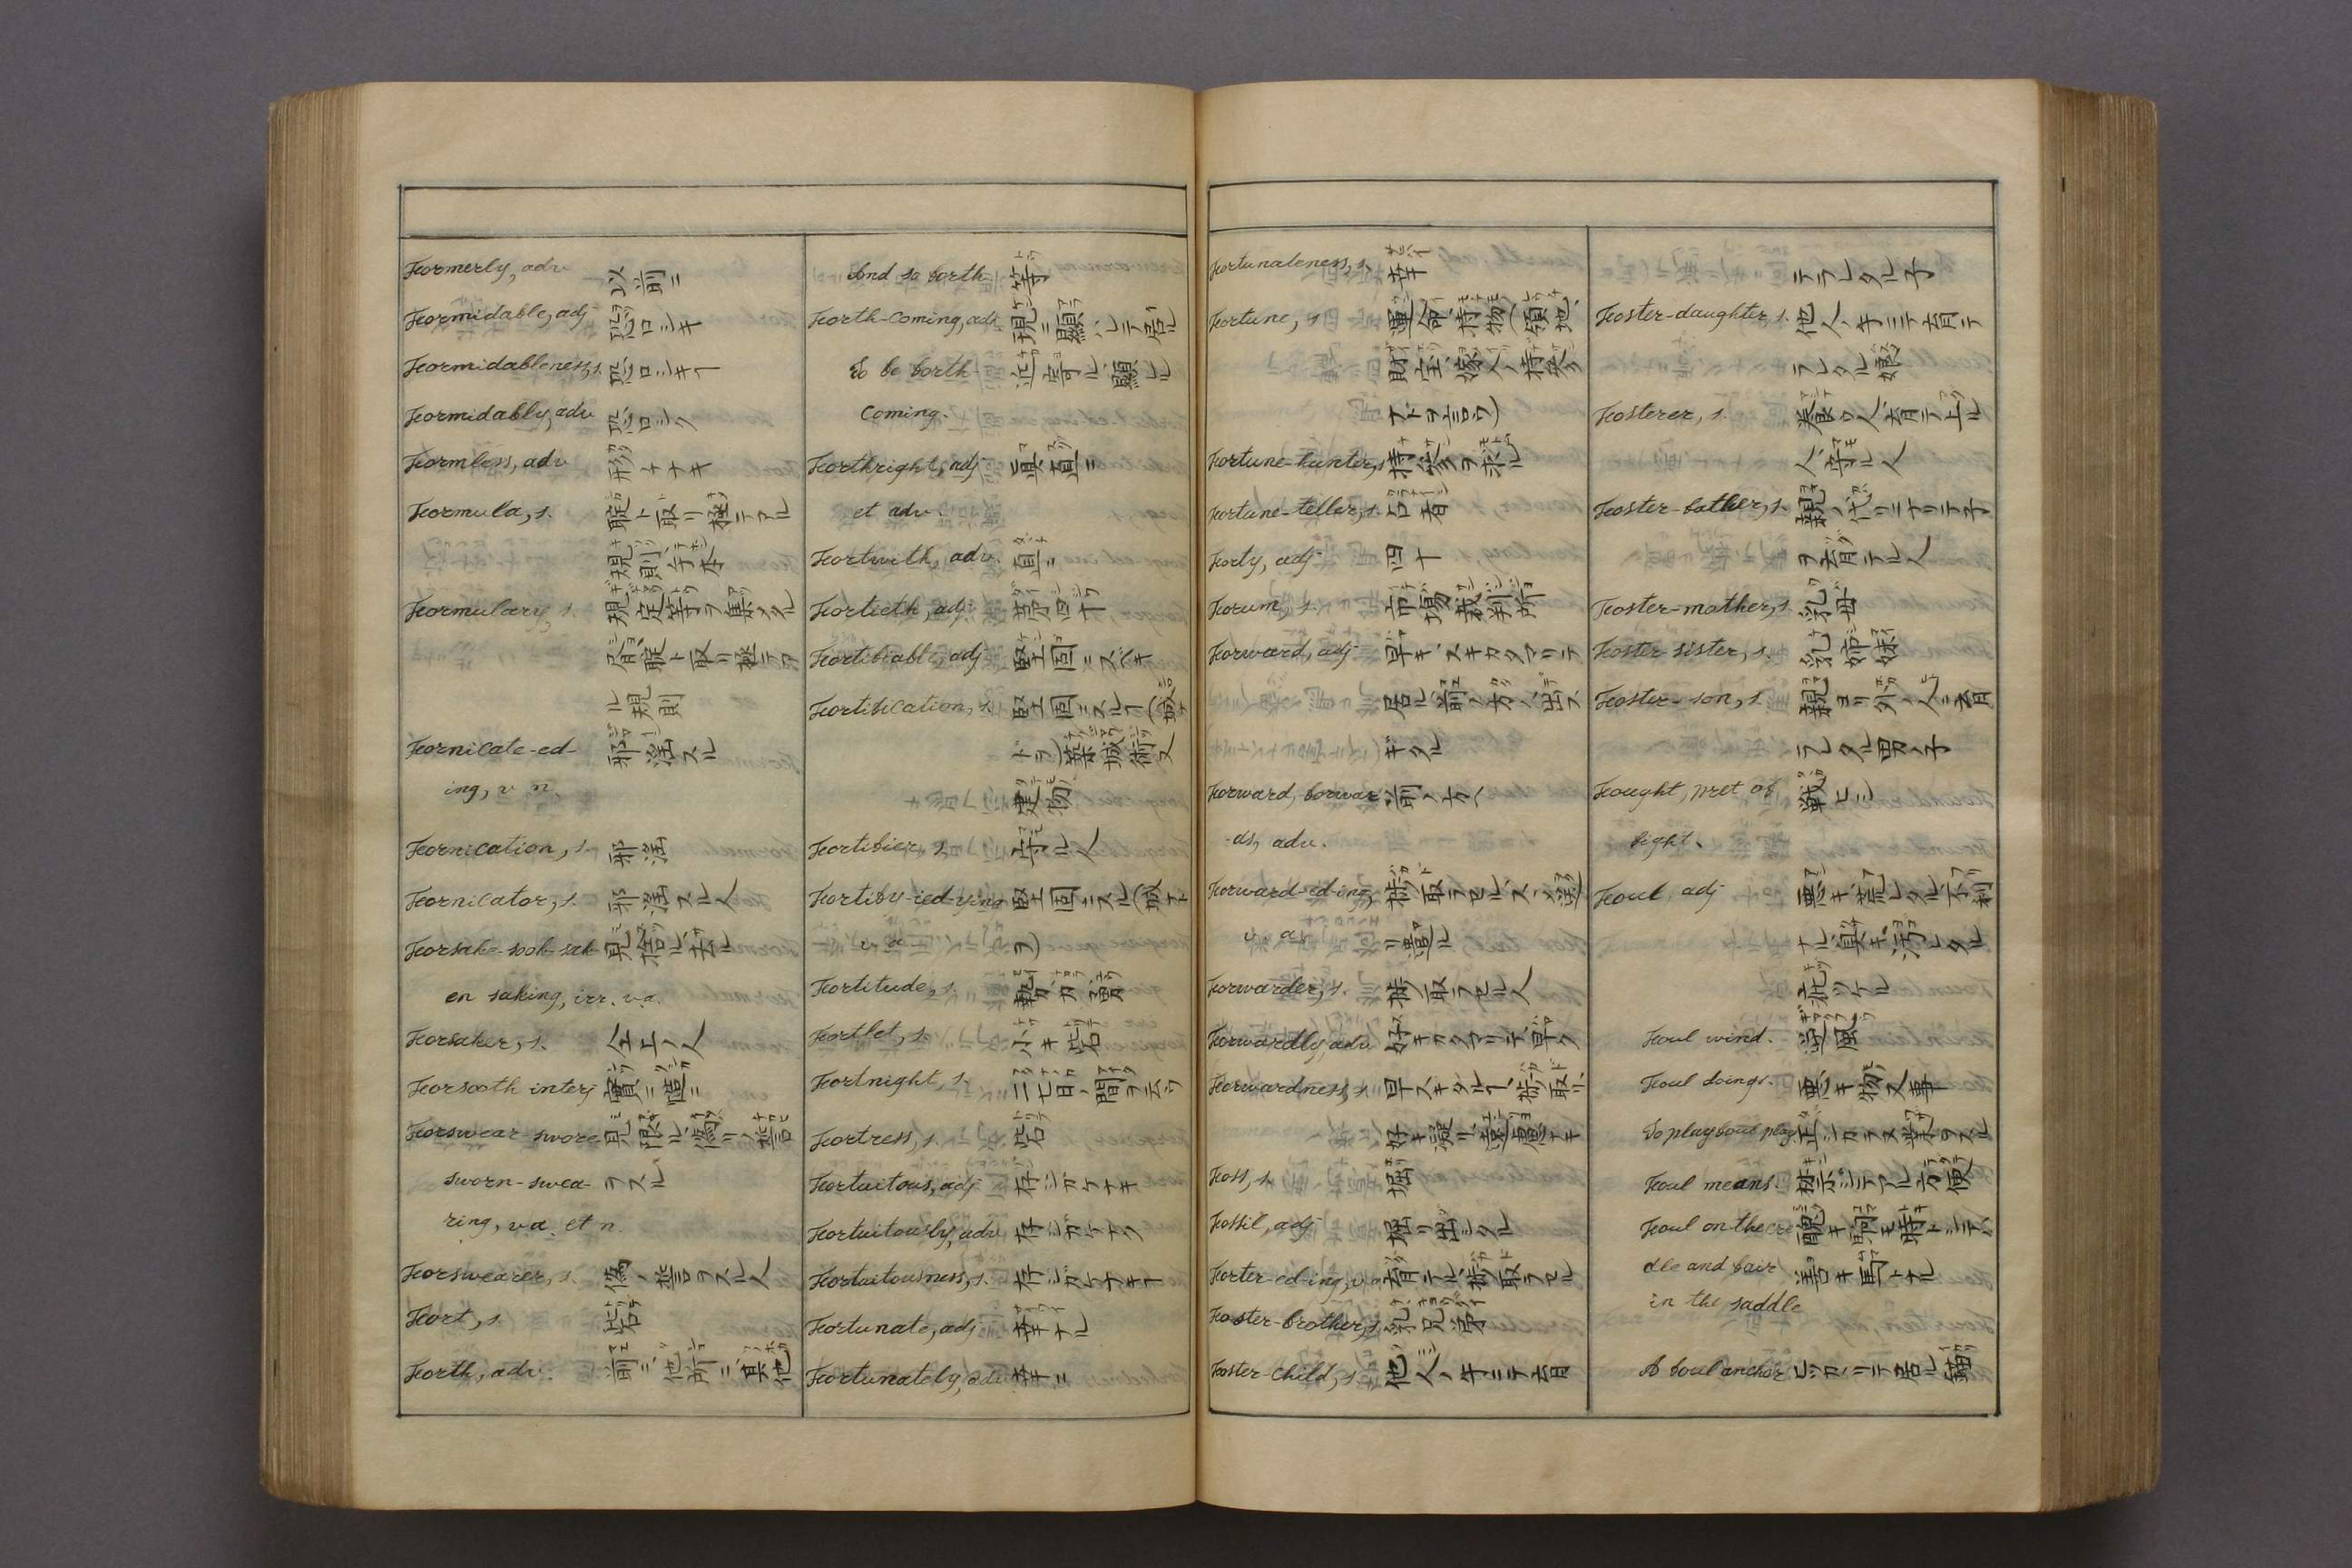 Formerly, adv 以前ニ
Formidable, adj 恐ロシキ
Formidableness, s. 恐ロシキヿ
Formidably, adv 恐ロシク
Formless, adv 形ナキ
Formula, s. 掟ト取リ極テアル
規則、手本
Formulary, s. 規定等ヲ集メタル
者、掟ト取リ極テア
ル規則
Fornicate-ed- 邪淫スル
ing, v n.
Fornication, s. 邪淫
Fornicator, s. 邪淫スル人
Forsake-sook-sak- 見捨ル、去ル
en saking, irr. v.a.
Forsaker, s. 仝上ノ人
Forsooth interj 實ニ、慥ニ
Forswear-swore 見限ル、偽リノ誓
sworn-swea- ヲスル
ring, va. et n.
Forswearer, s. 偽ノ誓ヲスル人
Fort, s. 砦
Forth, adv. 前ニ、他所ニ、其他
And so forth 等
Forth-coming, adj 現ニ顕ハレテ居ル
To be forth- 近寄ル、顕ルル
coming.
Forthright, adj 真直ニ
et adv.
Fortwith, adv. 直ニ
Fortieth, adj. 第四十
Fortifiable, adj 堅固ニスベキ
Fortification, s. 堅固ニスルヿ(城ナ
ドヲ)築城術又
建物
Fortifier, s. 守ル人
Fortify-ied-ying 堅固ニスル(城ナド
v a ヲ)
Fortitude, s. 勢力、勇
Fortlet, s. 小キ砦
Fortnight, s. 二七日ノ間ヲ云ウ
Fortress, s. 砦
Fortuitous, adj 存ジガケナキ
Fortuitously, adv 存ジガケナク
Fortuitousness, s. 存ジガケナキヿ
Fortunate, adj 幸ナル
Fortunately, adv 幸ニ
Fortunateness, s. 幸
Fortune, s 運命、持物(領地、
財宝、嫁入ノ持参
ナドヲ言ウ)
Fortune-hunter, s 持参ヲ求ル
Fortune-teller, s. 占者
Forty, adj 四十
Forum, s. 市場、裁判所
Forward, adj 早キ、スキカタマリテ
居ル、前ノ方ノ、出ス
ギタル
Forward, forwar 前ノ方ヘ
-ds, adv.
Forward-ed-ing, 捗取ラセル、ススメ、送
v a. リ遣ル
Forwarder, s. 捗取ラセル人
Forwardly, adv 好キカタマリテ、早ク
Forwardness, s. 早スキタルヿ、捗取ル、
好キ凝リ、遠慮ナキ
Foss, s. 堀
Fossil, adj 掘リ出シタル
Foster-ed-ing, v a 育テル、捗取ラセル
Foster-brother, s. 乳兄弟
Foster-child, s 他人ノ手ニテ育
テラレタル子
Foster-daughter, s. 他人ノ手ニテ育テ
ラレタル娘
Fosterer, s. 養ウ人、育テ上ル
人、守ル人
Foster-father, s. 親ノ代リニナリテ子
ヲ育テル人
Foster-mother, s 乳母
Foster-sister, s. 乳姉妹
Foster-son, s. 親ヨリ外ノ人ニ育
ラレタル男ノ子
Fought, pret of 戦ヒシ
fight.
Foul, adj 悪キ、荒レタル、不利
ナル、臭キ、汚レタル
疵ツケル
Foul wind. 逆風
Foul doings. 悪キ物又事
To play foul play 正シカラヌ業ヲスル
Foul means. 禁ジテアル方便
Foul on the cra 醜キ駒モ時トシテハ
dle and fair 善キ馬トナル
in the saddle
A foul anchor ヒッカヽリテ居ル錨